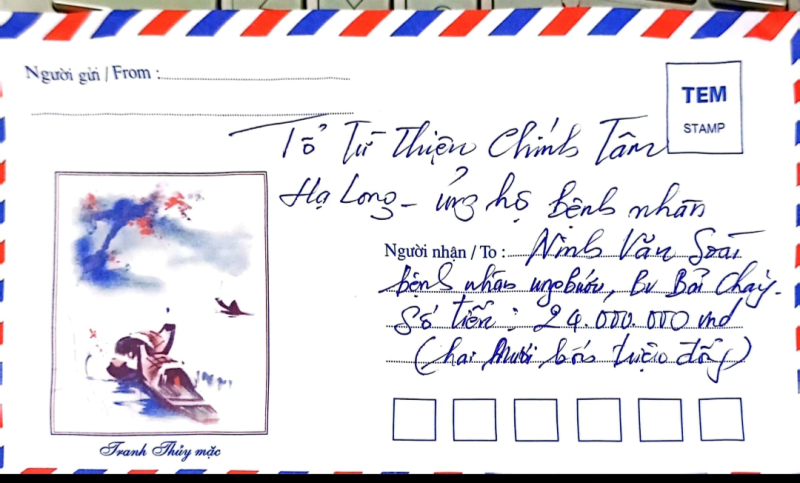 Người gửi / From :
TEM
STAMP
Tổ Từ Thiện Chính Tâm
Hạ Long - ủng hộ bệnh nhân
Người nhận / To : Ninh Văn Soái
bệnh nhân ung bướu, Bv Bãi Cháy.
Số tiền : 24.000.000 vnđ
(hai mươi bốn triệu đồng)
Tranh Thủy mặc